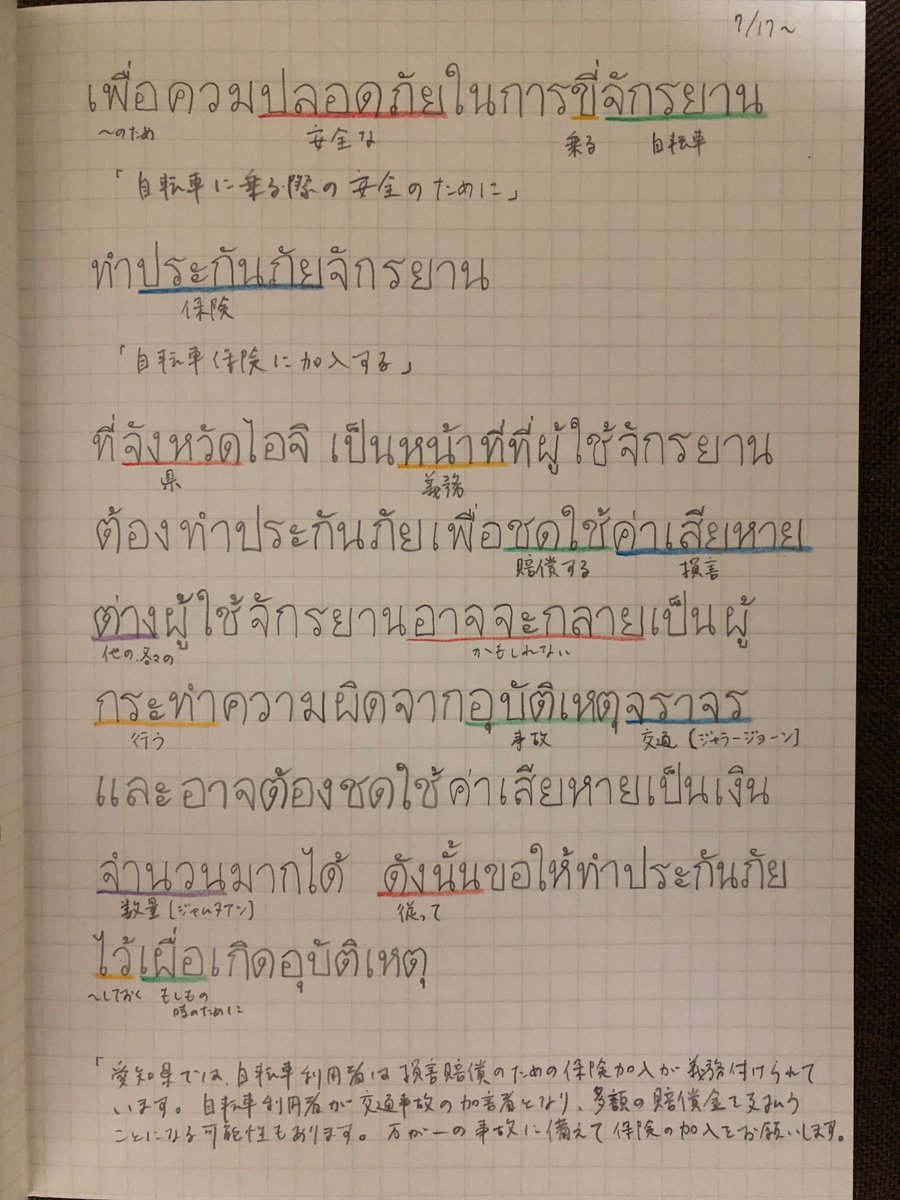 7/17~
เพื่อควมปลอดภัยในการขี่จักรยาน
~のため 安全な 乗る 自転車
「自転車に乗る際の安全のために」
ทำประกันภัยจักรยาน
保険
「自転車保険に加入する」
ที่จังหวัดไอจิ เป็นหน้าที่ที่ผู้ใช้จักรยาน
県 義務
ต้องทำประกันภัยเพื่อชดใช้ค่าเสียหาย
賠償する 損害
ต่างผู้ใช้จักรยานอาจจะกลายเป็นผู้
他の、各々の かもしれない
กระทำความผิดจากอุบัติเหตุจราจร
行う 事故 交通 [ジャラージョーン]
และอาจต้องชดใช้ค่าเสียหายเป็นเงิน
จำนวนมากได้ ดังนั้นขอให้ทำประกันภัย
数量 [ジャムヌアン] 従って
ไว้เผื่อเกิดอุบัติเหตุ
~しておく もしもの
時のために
「愛知県では、自転車利用者は損害賠償のための保険加入が義務付けられて
います。自転車利用者が交通事故の加害者となり、多額の賠償金を支払う
ことになる可能性もあります。万が一の事故に備えて保険の加入をお願いします。